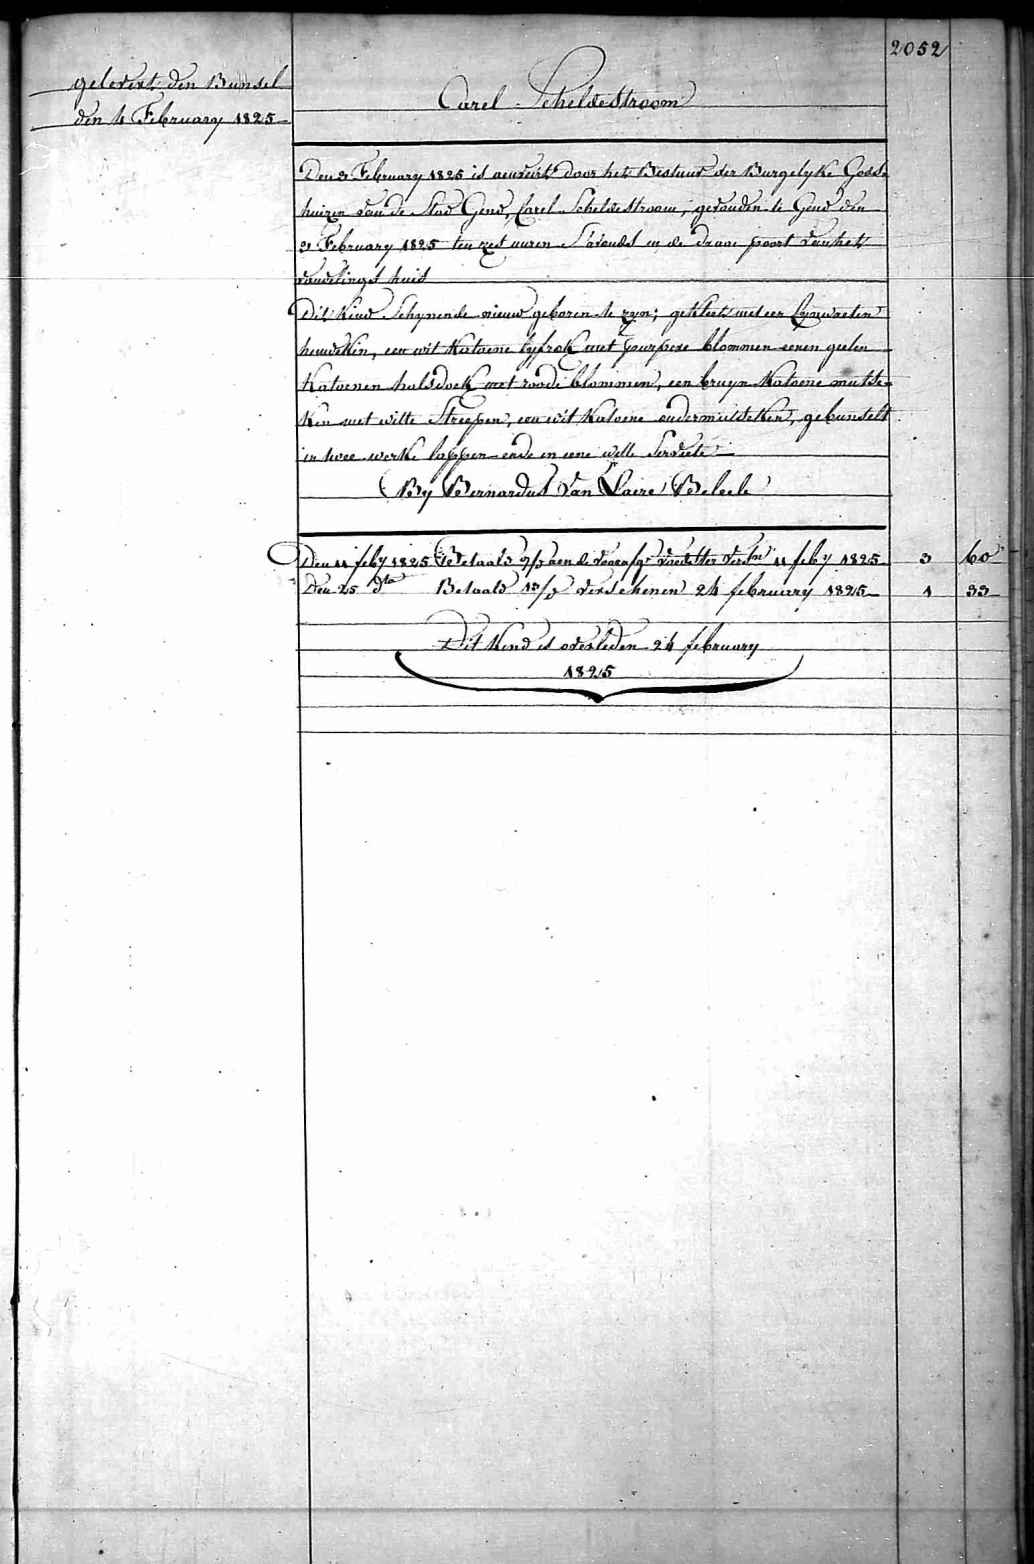 2052
gelevert den Bunsel
den 4 February 1825
Carel Scheldestroom
Den 3 February 1825 is aenveirt door het Bestuur der Burgelyke Gods-
huizen van de Stad Gend, Carel Scheldestroom, gevonden te Gend den
3 February 1825 ten zes uuren S'avonds in de draai poort van het
vondelings huis
Dit Kind schynende nieuw geboren te zyn; gekleet met een lynwaeten
hemdeken, een wit Katoene lyfrok met pourpere blommen eenen geelen
Katoenen halsdoek met roode blommen, een bruyn Katoene mutse-
ken met witte Streepen, een wit Katoene ondermutseken, gebunselt
in twee werke lappen ende in eene witte Serviete
By Bernardus Van Laere Belsele
Den 11 feby 1825 Betaald aen de voedster 11 feby 1825 3 60
Den 25 dto Betaald verschenen 24 february 1825 1 33
Dit Kind is overleden 24 february
1825